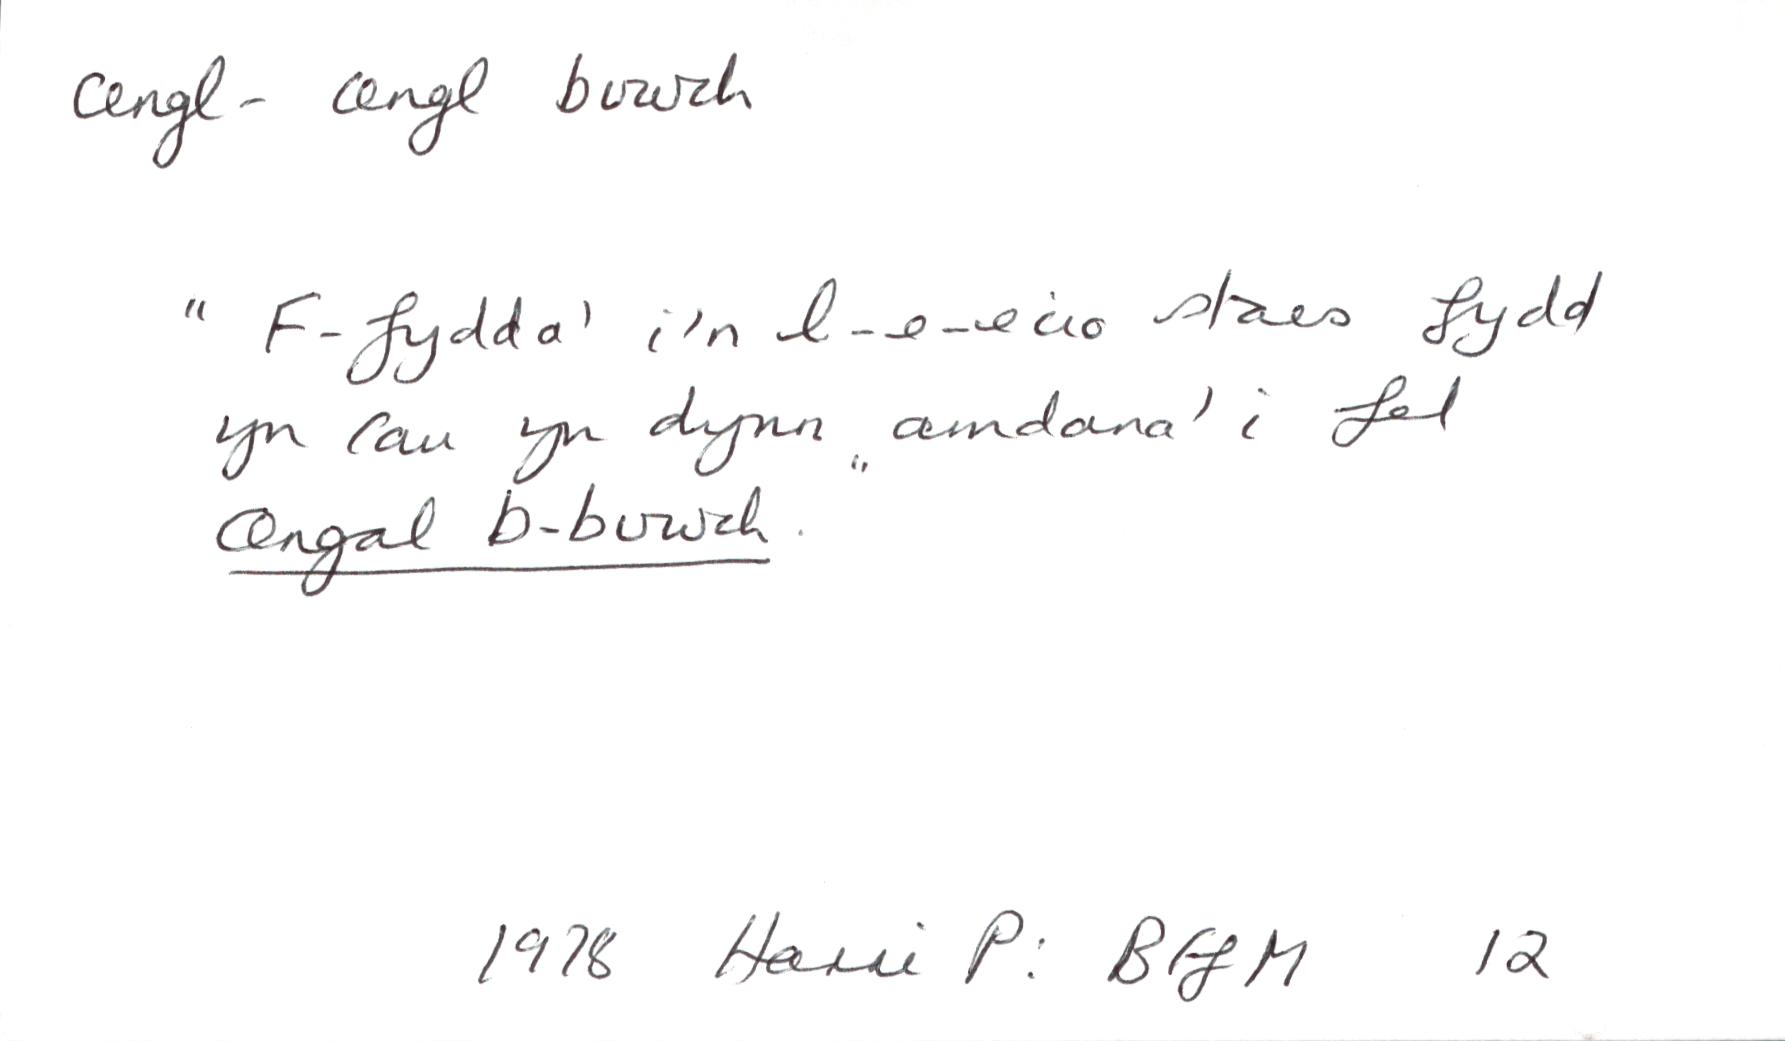 cengl - cengl buwch
" F-fydda' i'n l-e-eicio staes fydd
yn cau yn dynn amdana' i fel
cengal b-buwch. "
1978 Harri P: BFfM 12